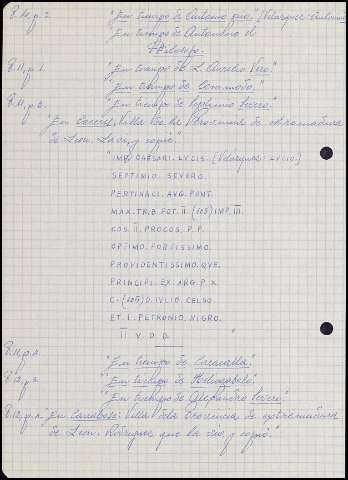 8.10, p. 2. "En tiempo de Antonino pio." (Velázquez: Antonino
"En tiempo de Antonino el
Philosofo.
8.11, p. 1. "En tiempo de L. Aurelio Vero."
"En tiempo de Commodo."
8.11, p. 2. "En tiempo de Septimio Severo."
"En Caceres, Villa de la Provincia de extremadura
de Leon. La vio, y copió."
"IMP. CAESARI. LVCIS. [Velázquez: LVCIO.]
SEPTIMIO. SEVERO.
PERTINACI. AVG. PONT.
MAX. TRIB. POT. II. (608) IMP. III.
COS. II. PROCOS. P. P.
OPTIMO. FORTISSIMO.
PROVIDENTISSIMO. QVE.
PRINCIPI. EX. ARG. P. X.
C. (608) D. IVLIO. CELSO.
ET. L. PETRONIO. NIGRO.
II V. D. D. "
"En tiempo de Caracalla."
"En tiempo de Heliogabalo."
"En tiempo de Alejandro Severo."
"En Caceres: Villa de la Provincia de extremadura
de Leon. que la vio, y copió."